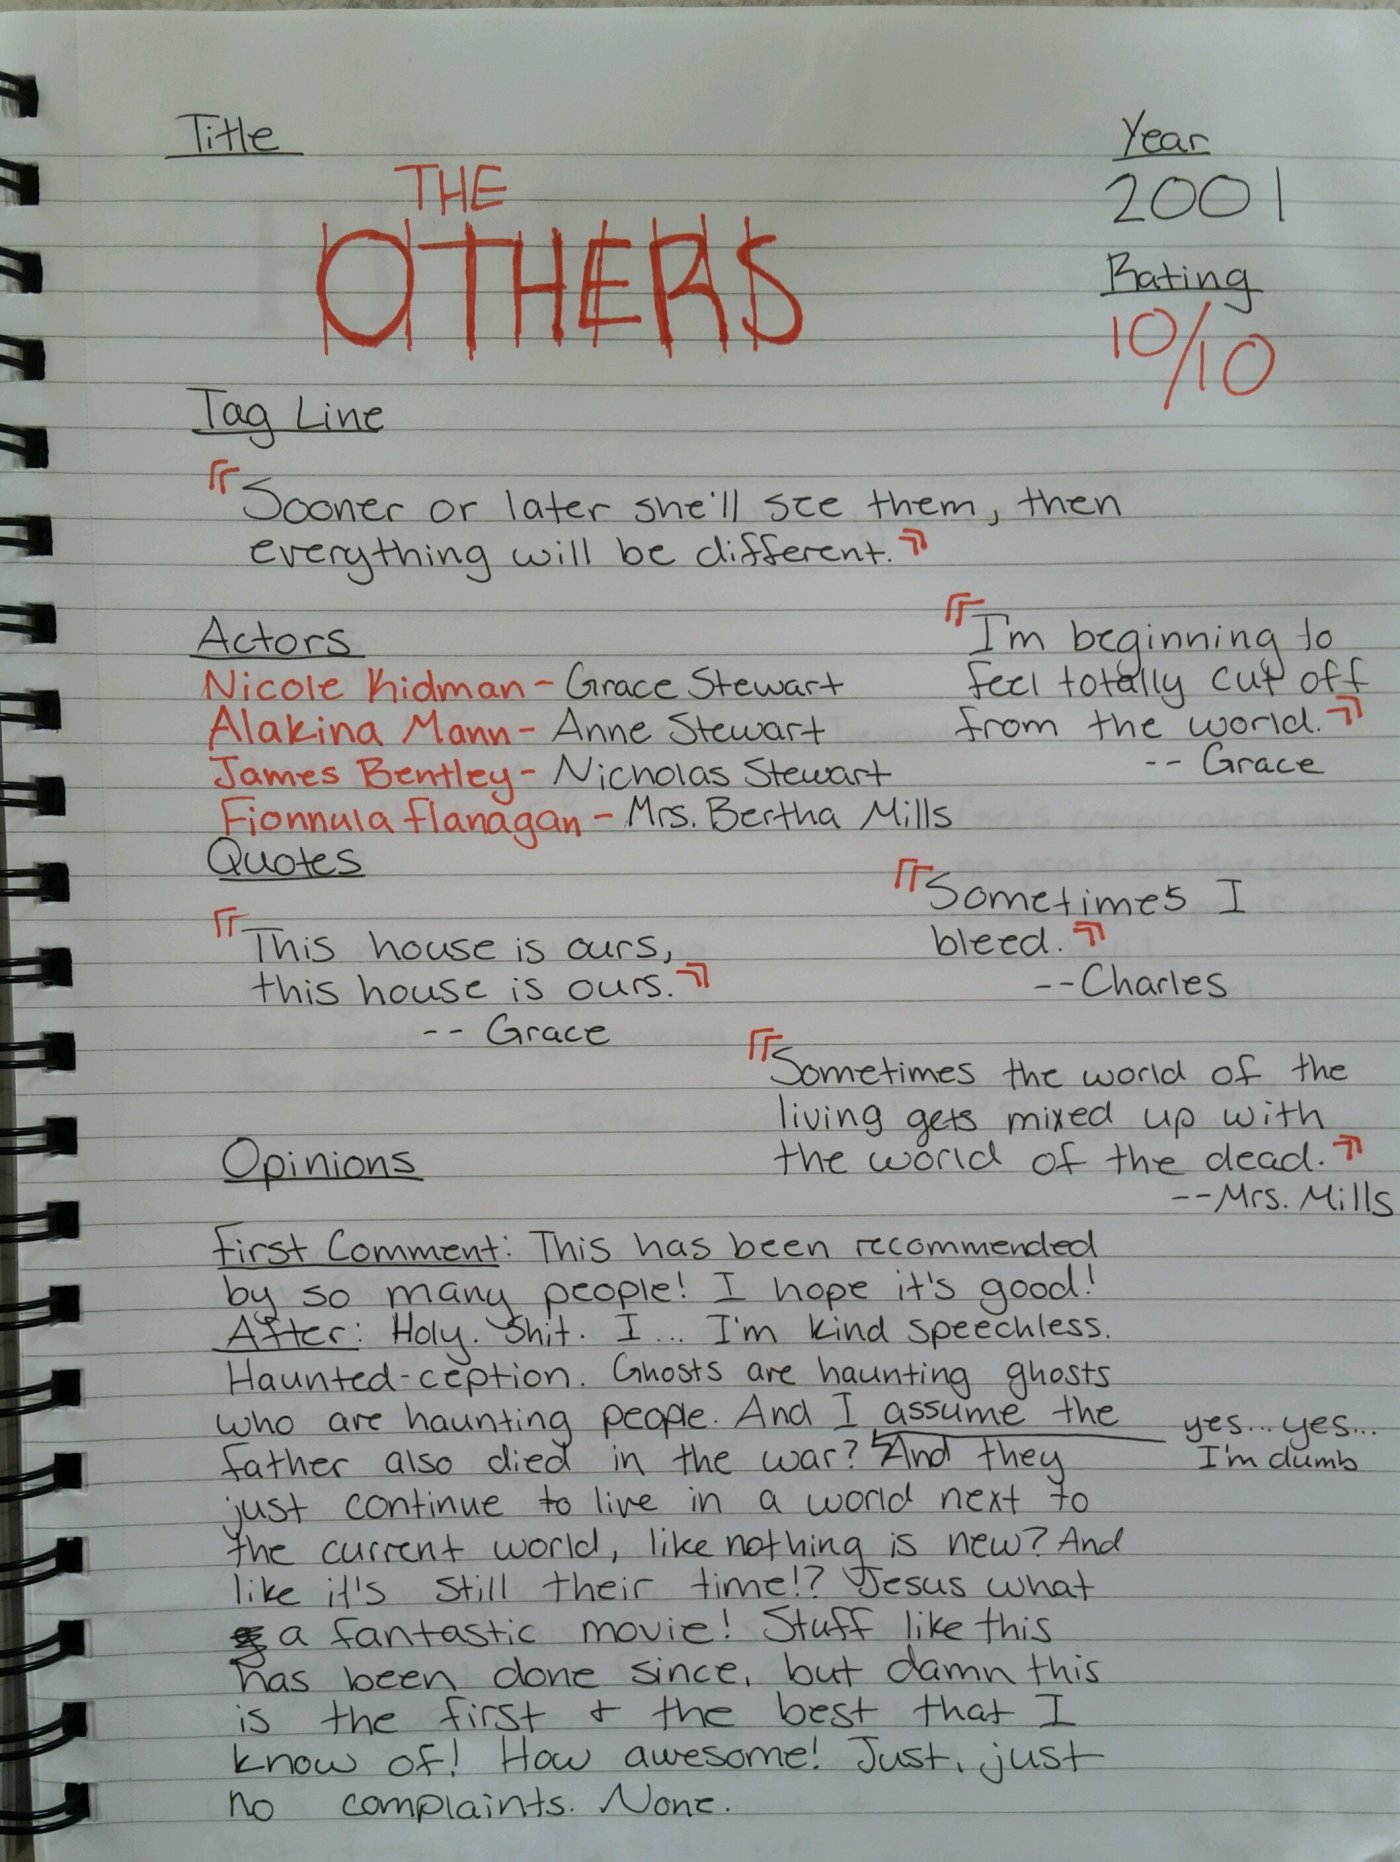 Title
THE
OTHERS
Year
2001
Rating
10/10
Tag Line
"Sooner or later she'll see them, then
everything will be different."
Actors
Nicole Kidman - Grace Stewart
Alakina Mann - Anne Stewart
James Bentley - Nicholas Stewart
Fionnula Flanagan - Mrs. Bertha Mills
"I'm beginning to
feel totally cut off
from the world."
-- Grace
Quotes
"This house is ours,
this house is ours."
-- Grace
"Sometimes I
bleed."
--Charles
"Sometimes the world of the
living gets mixed up with
the world of the dead."
--Mrs. Mills
Opinions
First Comment: This has been recommended
by so many people! I hope it's good!
After: Holy. Shit. I... I'm kind speechless.
Haunted-ception. Ghosts are haunting ghosts
who are haunting people. And I assume the
father also died in the war? And they
yes... yes...
I'm dumb
just continue to live in a world next to
the current world, like nothing is new? And
like it's still their time!? Jesus what
a fantastic movie! Stuff like this
has been done since, but damn this
is the first & the best that I
know of! How awesome! Just, just
no complaints. None.